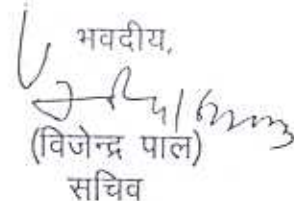 भवदीय,
(विजेन्द्र पाल)
सचिव